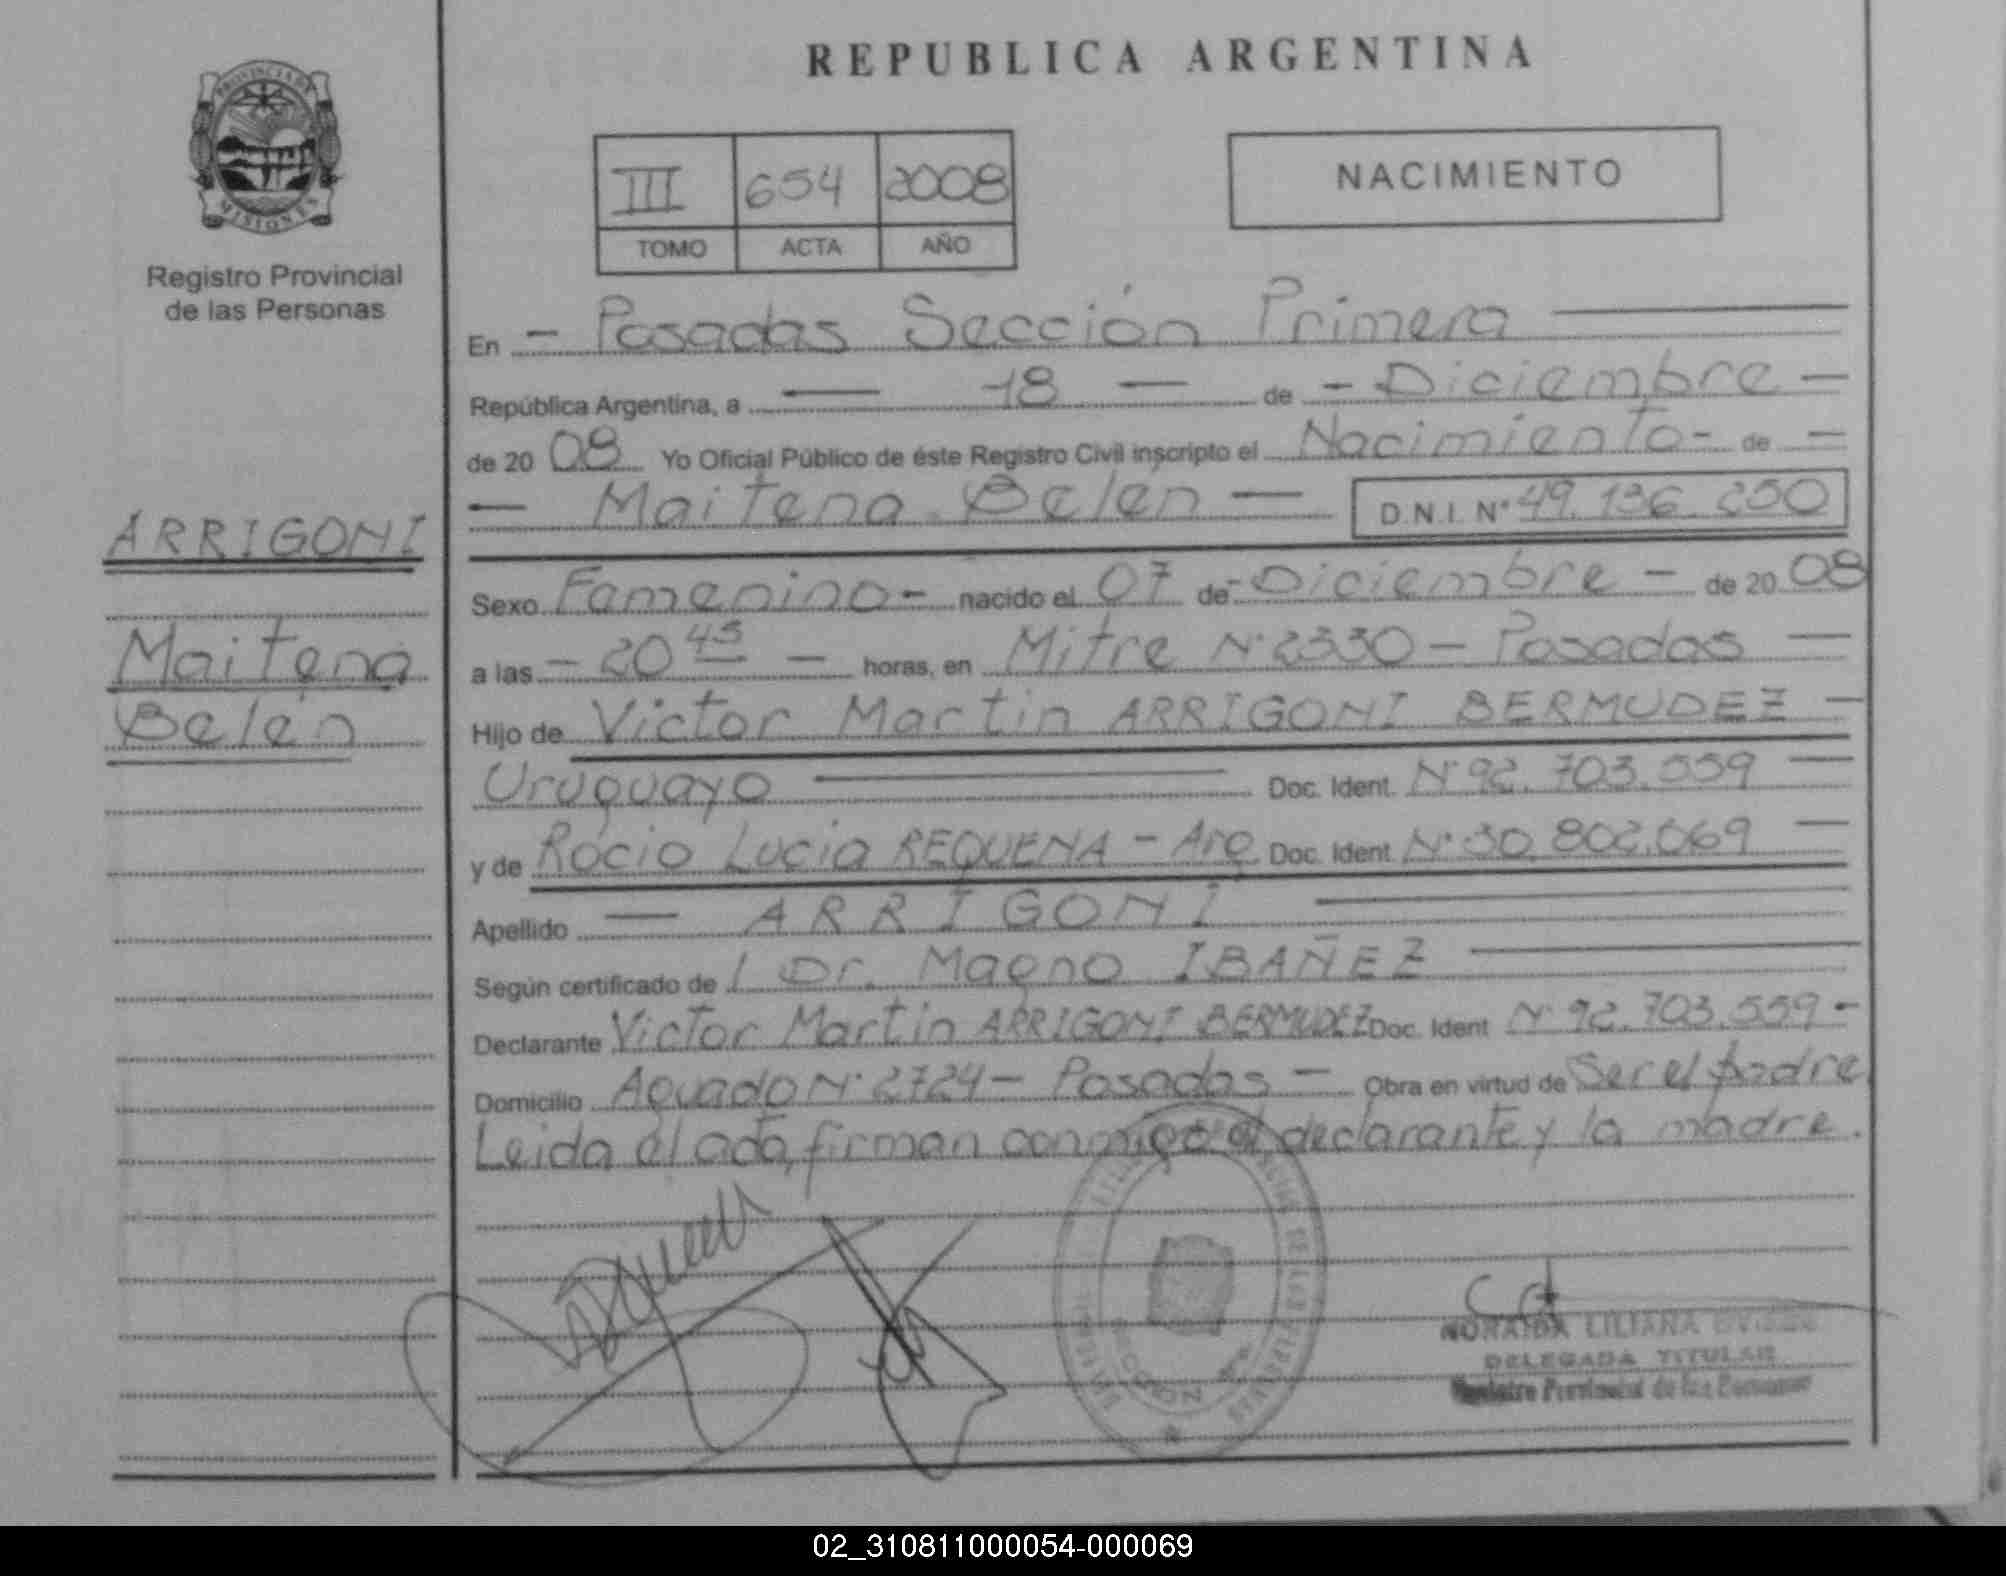 REPUBLICA ARGENTINA
PROVINCIA DE
MISIONES
Registro Provincial
de las Personas
III 654 2008
TOMO ACTA AÑO
NACIMIENTO
ARRIGONI
Maitena
Belén
En - Posadas Sección Primera
República Argentina, a — 18 — de - Diciembre -
de 20 08 Yo Oficial Público de éste Registro Civil inscripto el Nacimiento - de -
— Maitena Belén — D.N.I. N° 49.136.250
Sexo Femenino - nacido el 07 de - Diciembre - de 20 08
a las - 20 45 - horas, en Mitre N° 2330 - Posadas —
Hijo de Victor Martin ARRIGONI BERMUDEZ -
Uruguayo — Doc. Ident. N° 92.703.559 —
y de Rocio Lucia REQUENA - Arg. Doc. Ident. N° 30.802.069 —
Apellido — ARRIGONI —
Según certificado de / Dr. Magno IBAÑEZ —
Declarante Victor Martin ARRIGONI BERMUDEZ Doc. Ident N° 92.703.559 -
Domicilio Aguado N° 2724 - Posadas - Obra en virtud de Ser el padre
Leida el acta, firman conmigo el declarante y la madre.
LILIANA
DELEGADA TITULAR
Registro Provincial de las Personas
02_310811000054-000069